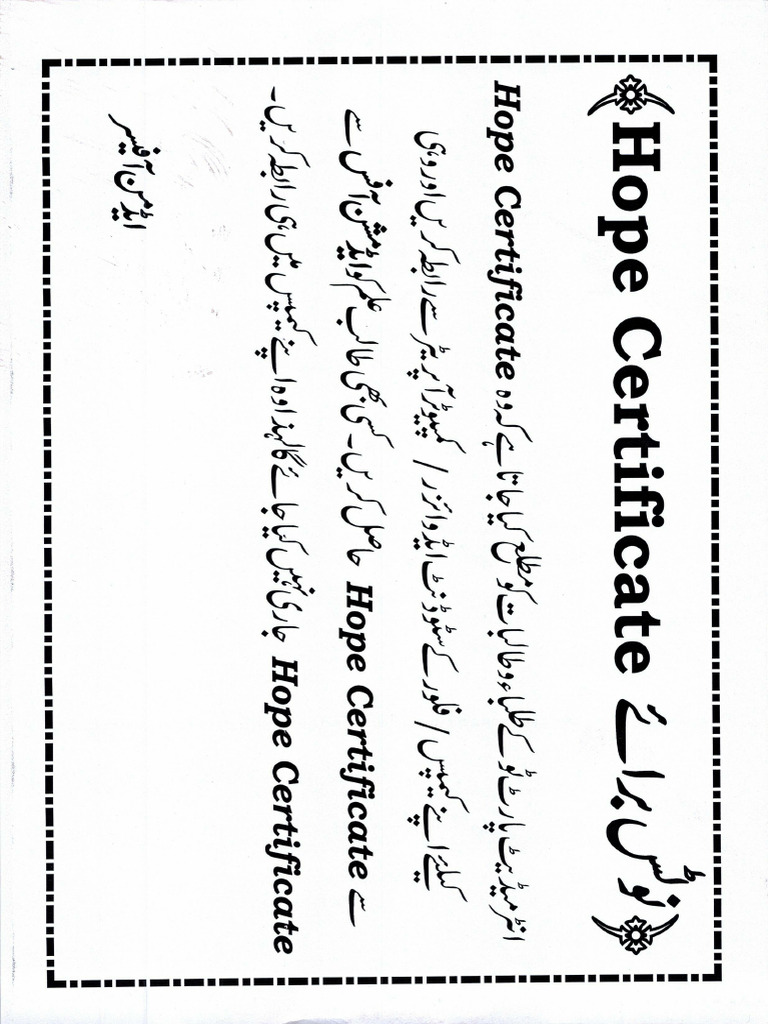 نوٹس برائے Hope Certificate
انٹرمیڈیٹ پارٹ ٹو کے طلباء و طالبات کو مطلع کیا جاتا ہے کہ وہ Hope Certificate
کیلئے اپنے کیمپس / فلور کے سٹوڈنٹ ایڈوائزر / کمپیوٹر آپریٹر سے رابطہ کریں اور وہی
سے Hope Certificate حاصل کریں۔ کسی بھی طالب علم کو ایڈمشن آفس سے
Hope Certificate جاری نہیں کیا جائے گا لہذا وہ اپنے کیمپس میں ہی رابطہ کریں۔
ایڈمن آفیسر